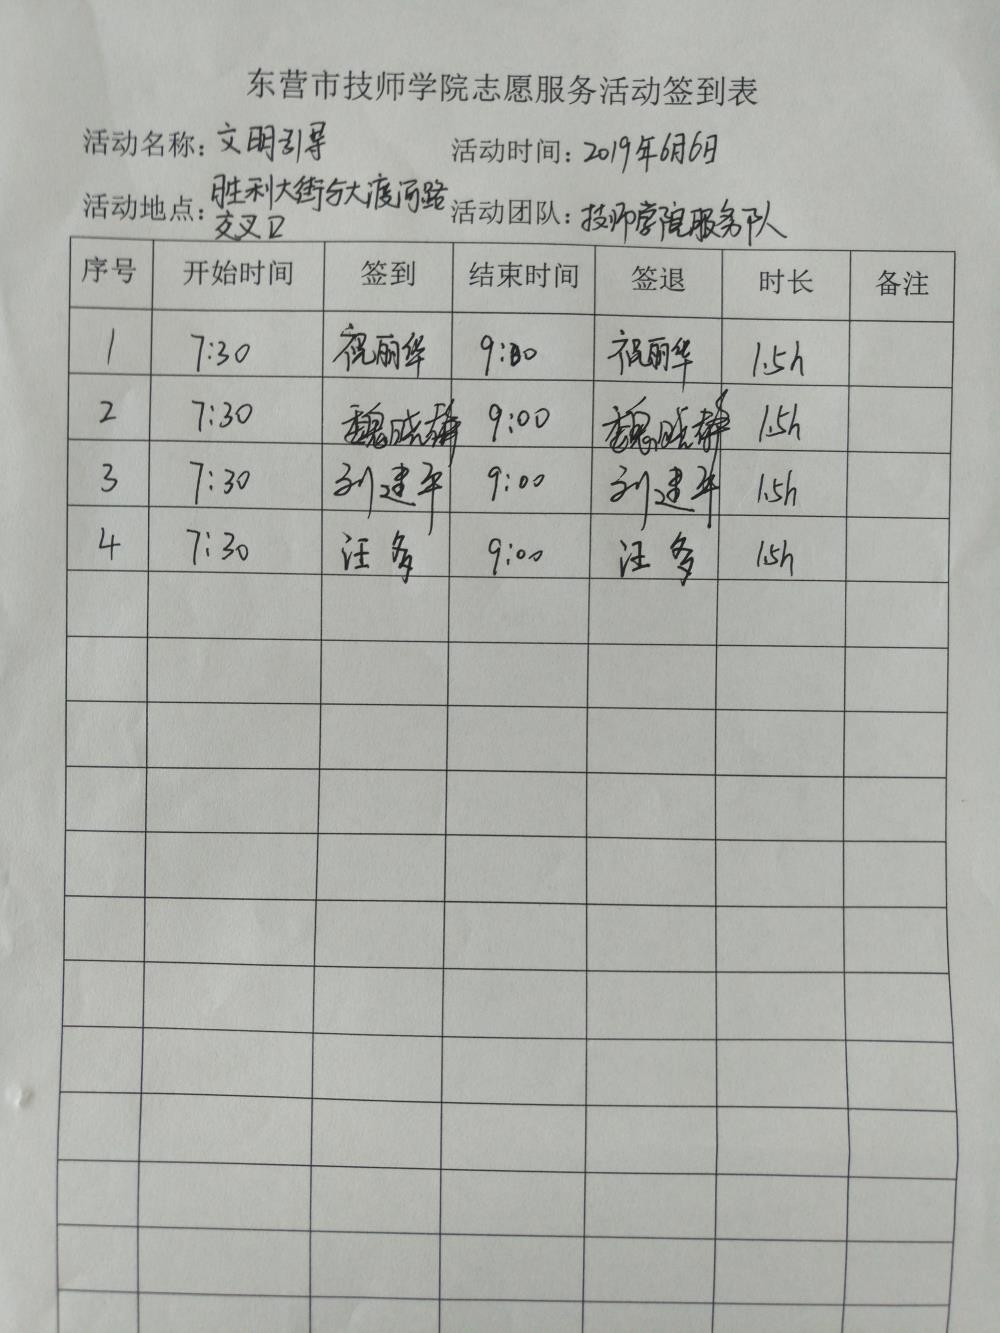 东营市技师学院志愿服务活动签到表
活动名称：文明引导 活动时间：2019年6月6日
活动地点：胜利大街与大渡河路交叉口 活动团队：技师学院服务队
序号 开始时间 签到 结束时间 签退 时长 备注
1 7:30 祝丽华 9:00 祝丽华 1.5h
2 7:30 魏晓静 9:00 魏晓静 1.5h
3 7:30 刘建平 9:00 刘建平 1.5h
4 7:30 汪多 9:00 汪多 1.5h